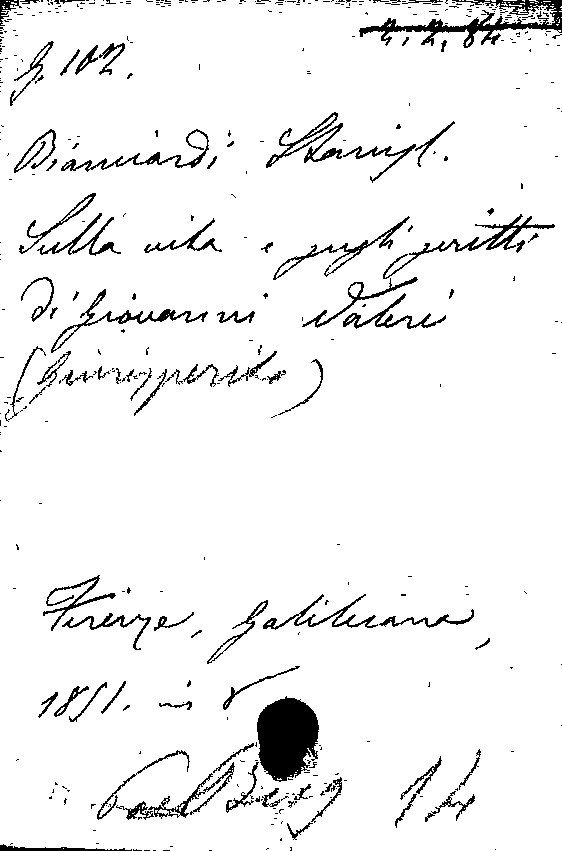 Z. Z. 84
G. 102.
Bianciardi Stanisl.
Sulla vita e sugli scritti
di Giovanni Valeri
(Giurisperito)
Firenze, Galileiana,
1851. in 8
14